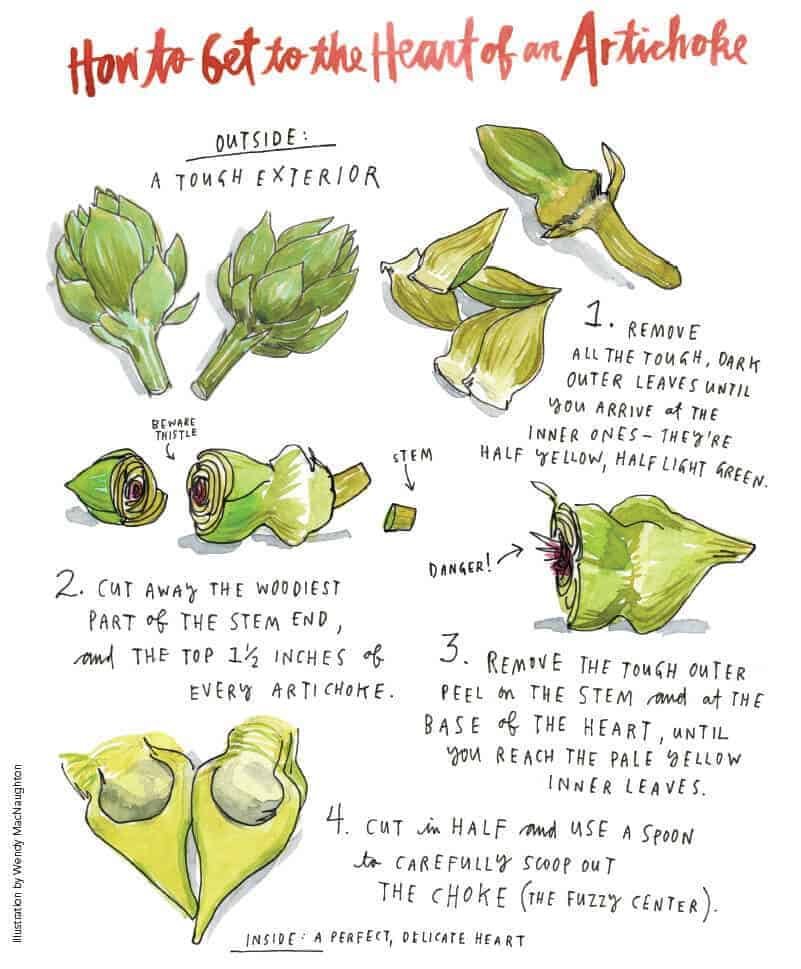 How to Get to the Heart of an Artichoke
OUTSIDE:
A TOUGH EXTERIOR
1. REMOVE
ALL THE TOUGH, DARK
OUTER LEAVES UNTIL
YOU ARRIVE at THE
INNER ONES – THEY'RE
HALF YELLOW, HALF LIGHT GREEN.
BEWARE
THISTLE
STEM
2. CUT AWAY THE WOODIEST
PART of THE STEM END,
and THE TOP 1½ INCHES of
EVERY ARTICHOKE.
DANGER!
3. REMOVE THE TOUGH OUTER
PEEL on THE STEM and at THE
BASE of THE HEART, UNTIL
YOU REACH THE PALE YELLOW
INNER LEAVES.
4. CUT in HALF and USE A SPOON
to CAREFULLY SCOOP OUT
THE CHOKE (THE FUZZY CENTER).
INSIDE: A PERFECT, DELICATE HEART
Illustration by Wendy MacNaughton